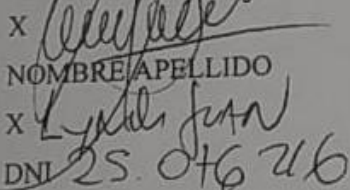 X
NOMBRE/APELLIDO
X JUAN
DNI 25.046 216